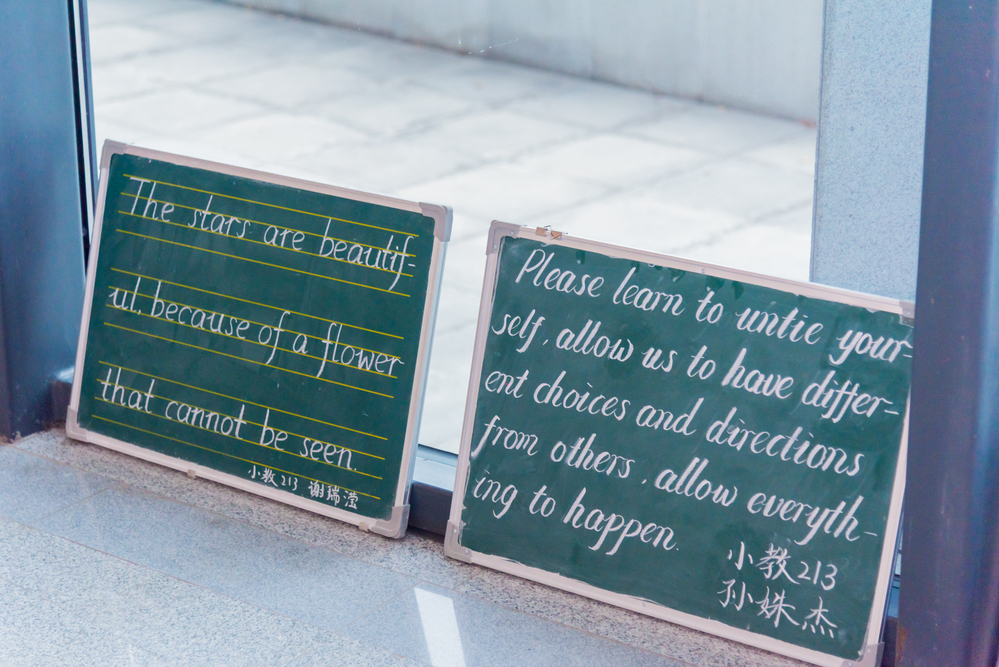 The stars are beautif-
ul, because of a flower
that cannot be seen.
小教213 谢瑞滢
Please learn to untie your-
self, allow us to have differ-
ent choices and directions
from others, allow everyth-
ing to happen.
小教213
孙姝杰